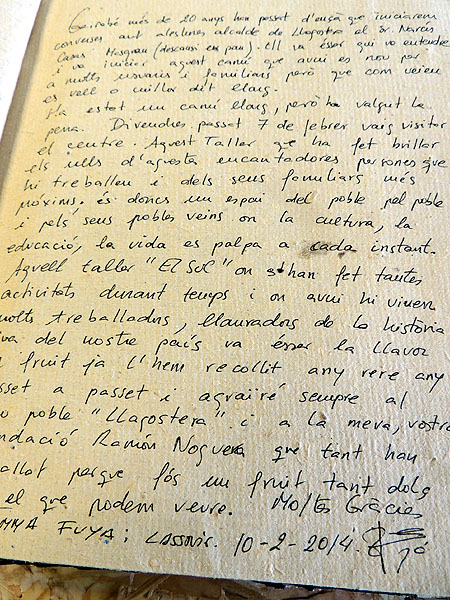 Gairabé més de 20 anys han passat d'ençà que iniciarem
converses amb aleshores alcalde de Llagostera el sr. Narcís
Casas Masgrau (descansi en pau). Ell va ésser qui va entendre
i va iniciar aquest camí que avui es nou per
a molts usuaris i familiars però que com veiem
es vell o millor dit llarg.
Ha estat un camí llarg, però ha valgut la
pena. Divendres passat 7 de febrer vaig visitar
el centre. Aquest Taller que ha fet brillar
els ulls d'aquesta encantadores persones que
hi treballeu i dels seus familiars més
pròxims. és doncs un espai del poble pel poble
i pels seus pobles veins on la cultura, la
educació, la vida es palpa a cada instant.
Aquell taller "El Sol" on s'han fet tantes
activitats durant temps i on avui hi viuen
molts treballadors, llauradors de la història
va del nostre país va ésser la llavor
fruit ja l'hem recollit any rere any
sset a passet i agrairé sempre al
poble "Llagostera" i a la meva, vostra
ndació Ramón Noguera que tant han
allat perque fós un fruit tant dolç
el que podem veure. Moltes Gràcies
FUYA i 10-2-2014.